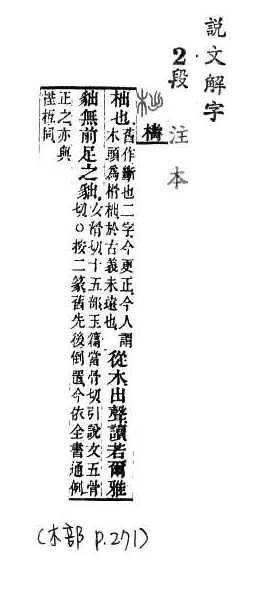 說文解字
2段 注本
檮
柮也
舊作斷也二字今更正今人謂
木頭爲榾柮於古義未遠也
從木出聲讀若爾雅
貀無前足之貀
女滑切十五部玉篇當骨切引說文五骨
切○按二篆舊先後倒置今依全書通例
正之亦與
桎梏同
(木部 P.271)